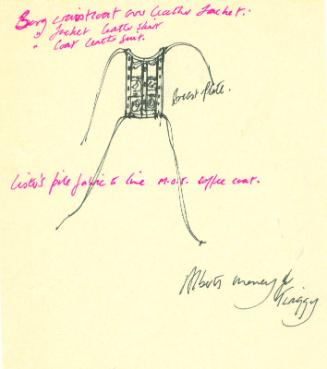 Berg waistcoat over leather Jacket.
" Jacket leather skirt
" Coat leather suit.
Breast Plate.
Lister's pile fabric to line m.o.t. coffee coat.
Alberts money for
Twiggy